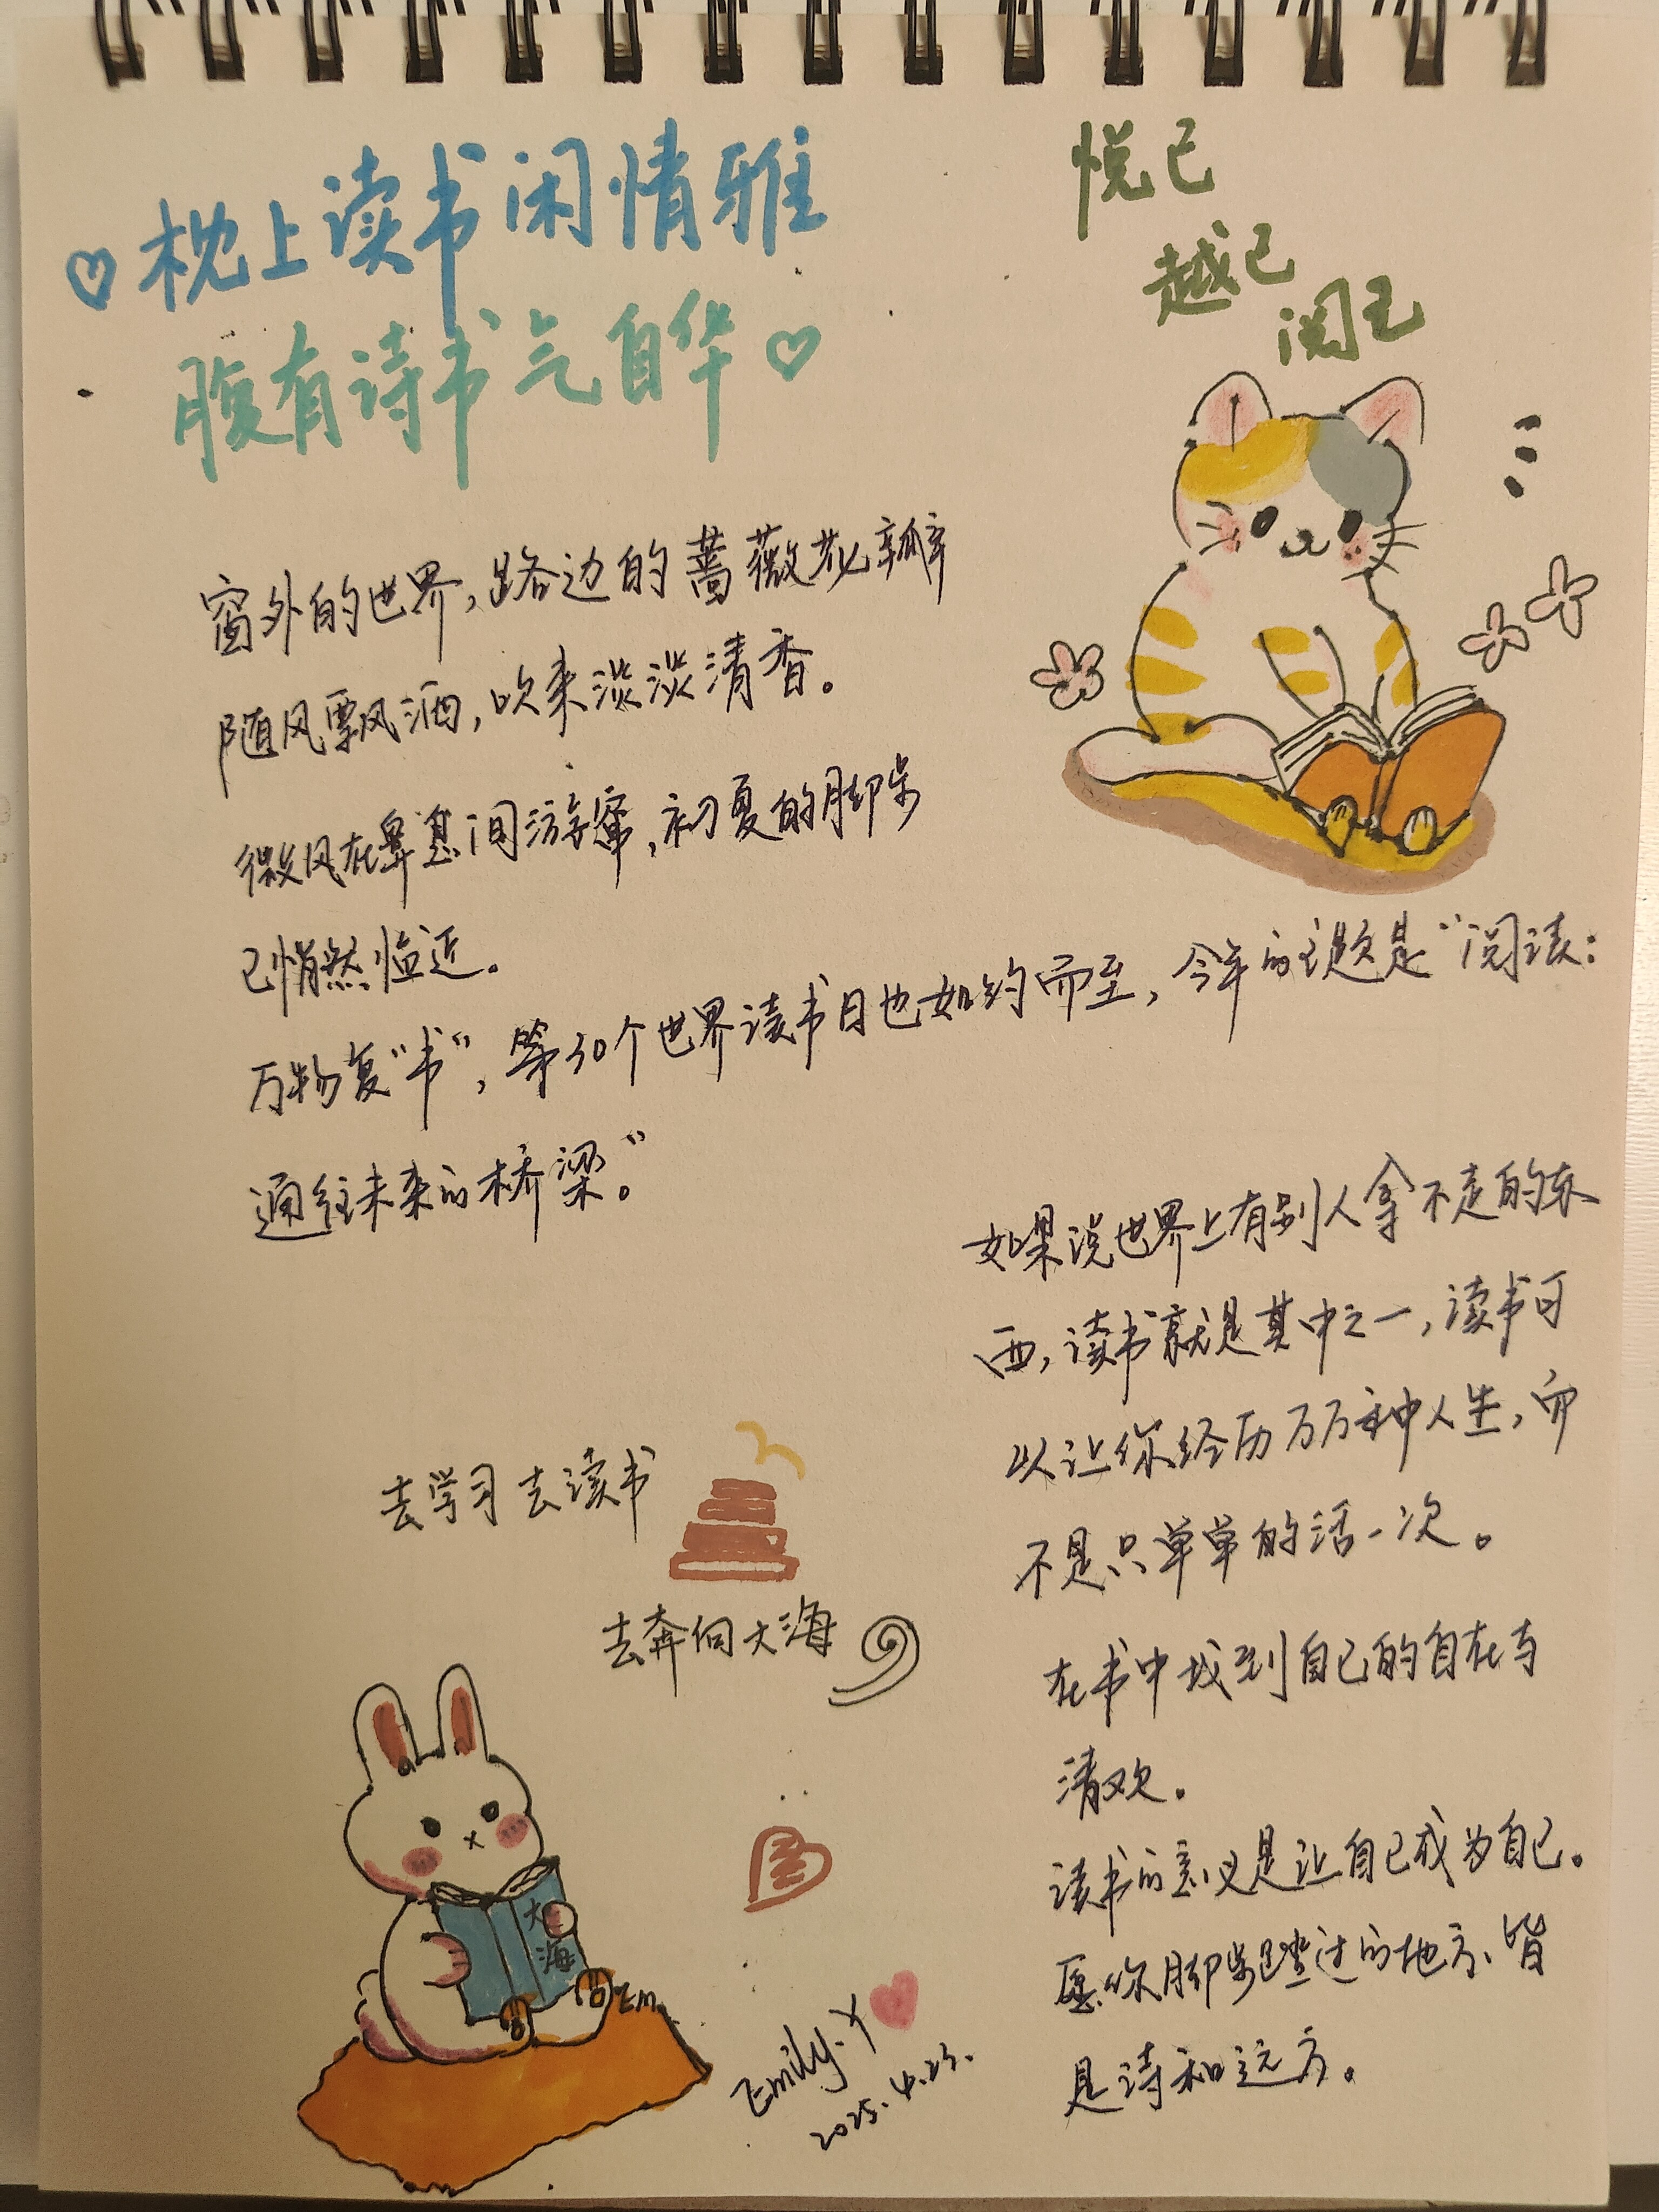 枕上读书闲情雅
腹有诗书气自华
悦己
越己
阅己
窗外的世界,路边的蔷薇花瓣
随风飘洒,吹来淡淡清香。
微风在鼻息间游窜,初夏的脚步
已悄然临近。
万物复“书”,第30个世界读书日也如约而至,今年的主题是“阅读:
通往未来的桥梁。”
如果说世界上有别人拿不走的东
西,读书就是其中之一,读书可
以让你经历万万种人生,而
不是只单单的活一次。
在书中找到自己的自在与
清欢。
读书的意义是让自己成为自己。
愿你脚步踏过的地方、皆
是诗和远方。
去学习 去读书
去奔向大海
大海
Em.
Emily.Y
2025.4.23.